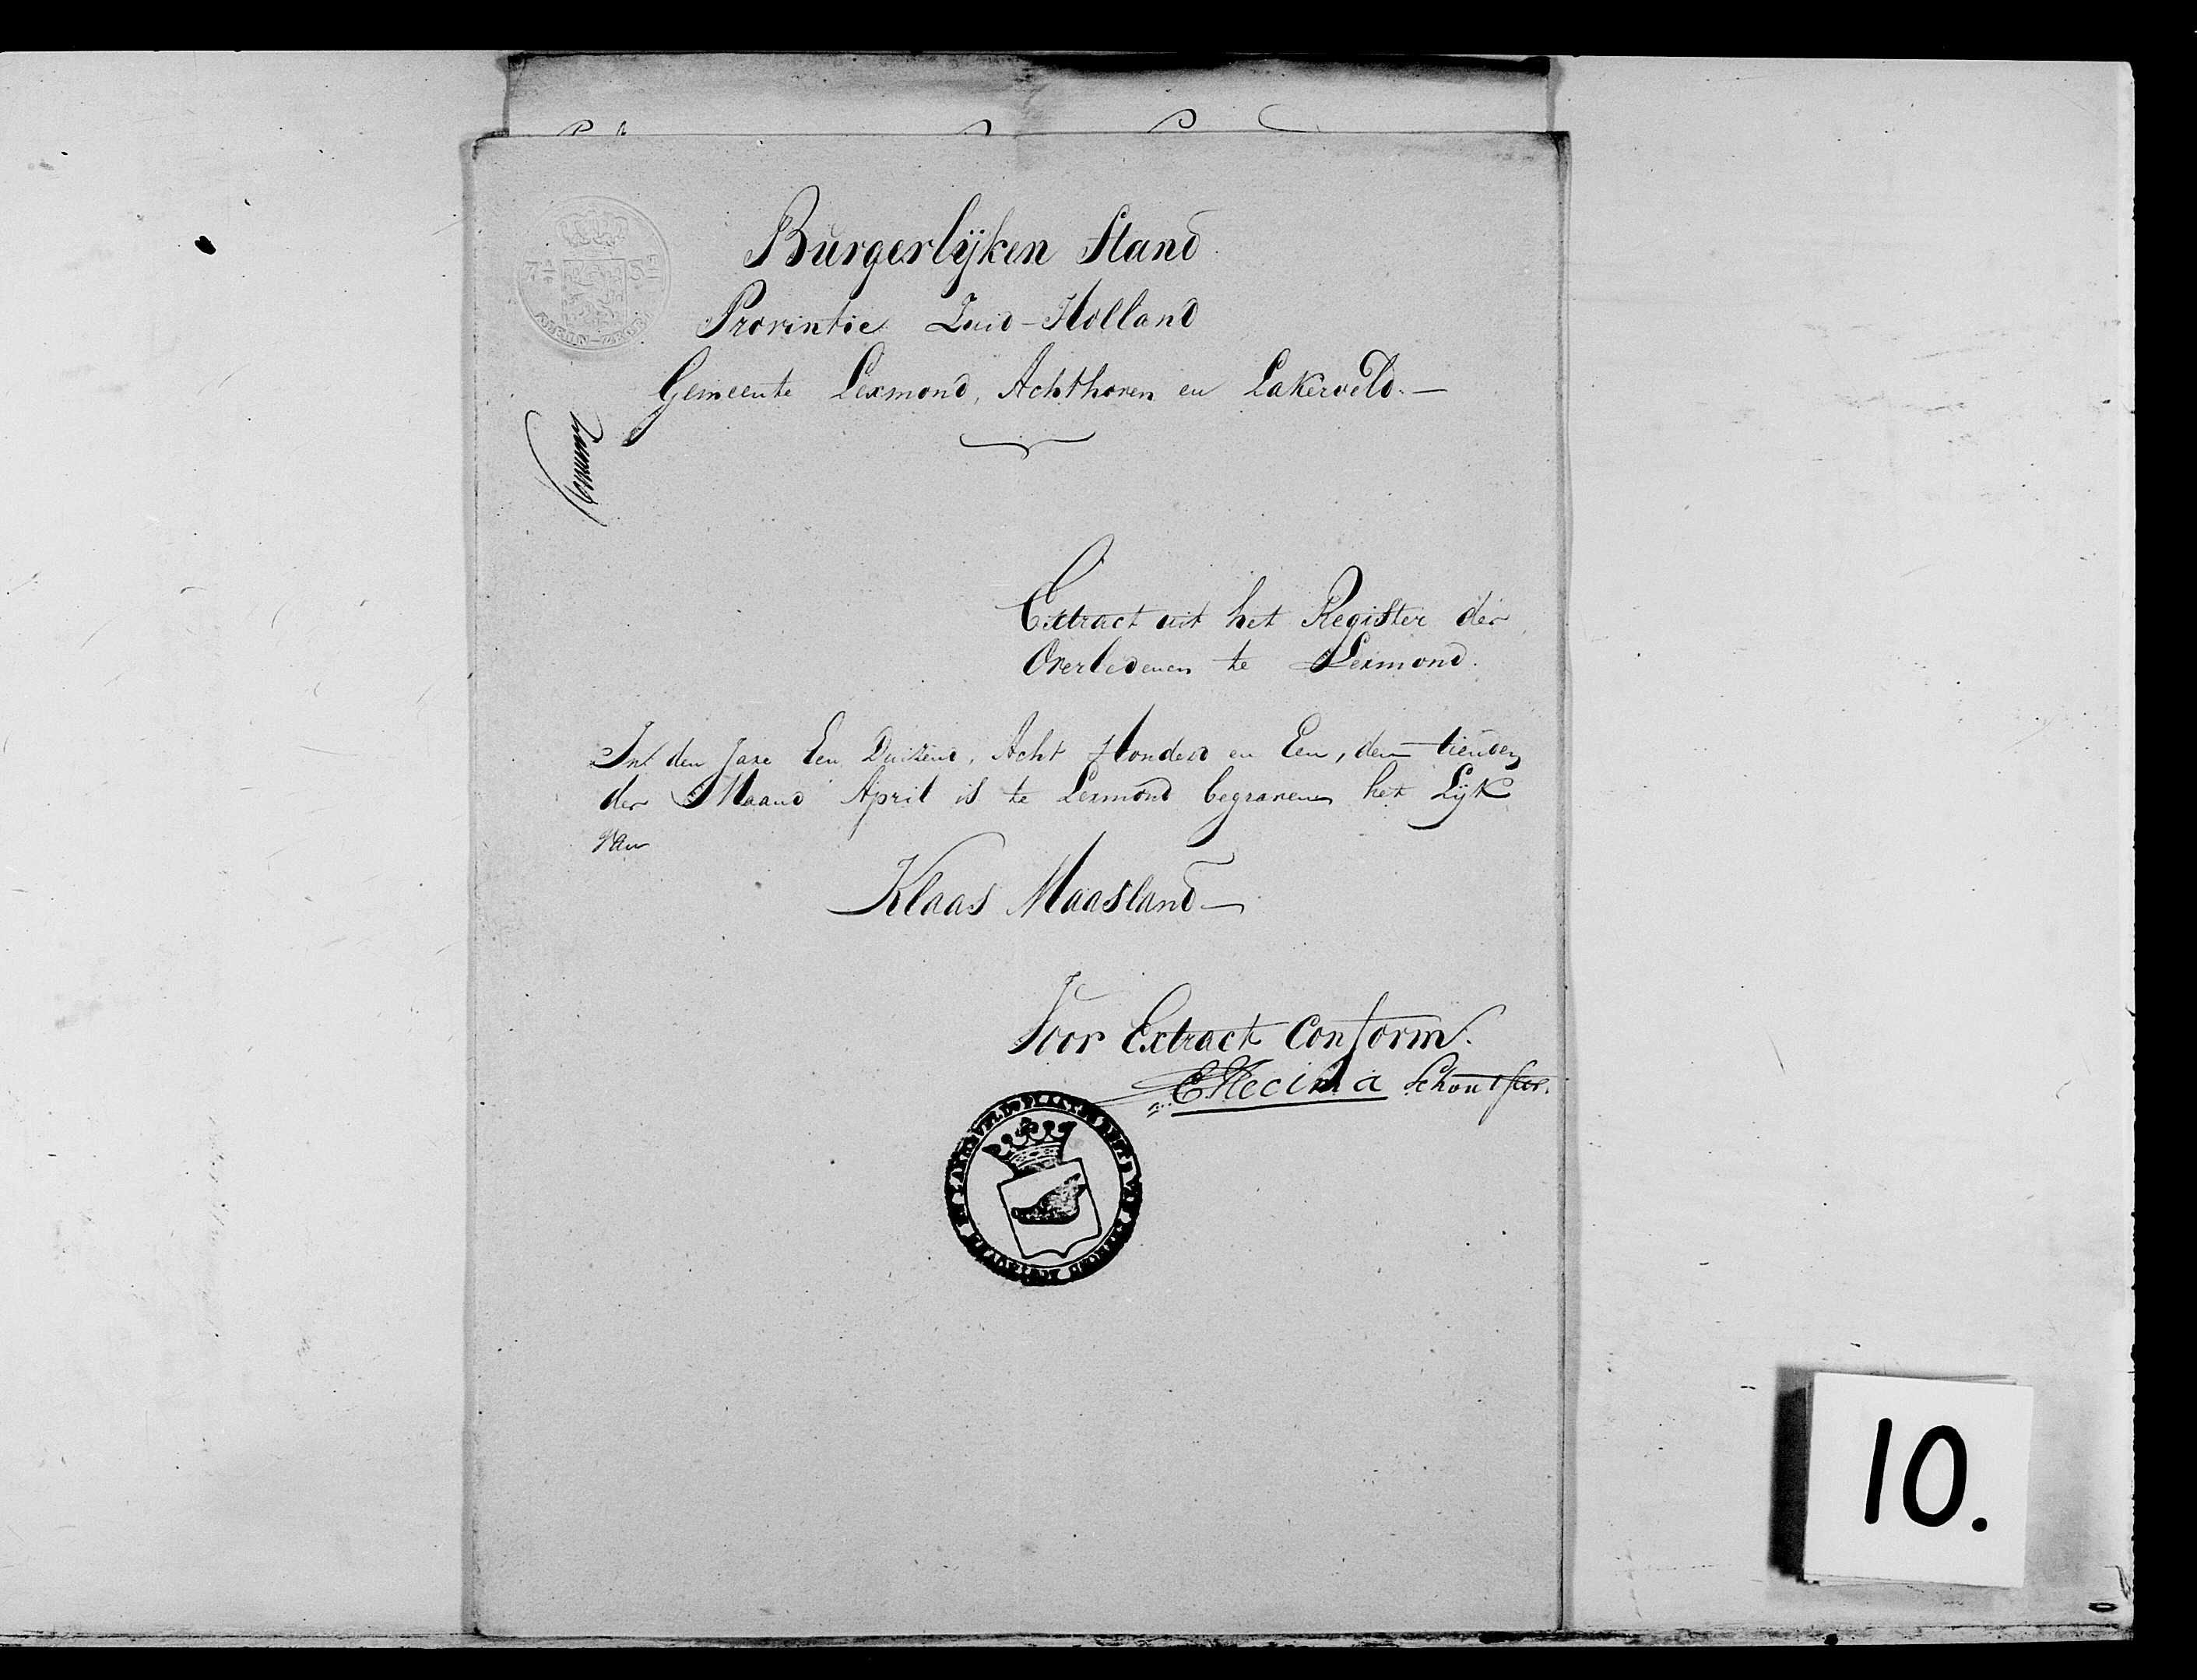 Burgerlÿken Stand
Provintie Zuid-Holland
Gemeente Lexmond, Achthoven en Lakerveld.—
Extract uit het Register der
Overledenen te Lexmond.
In den Jare Een Duizend, Acht Honderd en Een, den tienden
der Maand April is te Lexmond begraven het Lyk
van
Klaas Maasland—
Voor Extract Conform.
Schout
10.